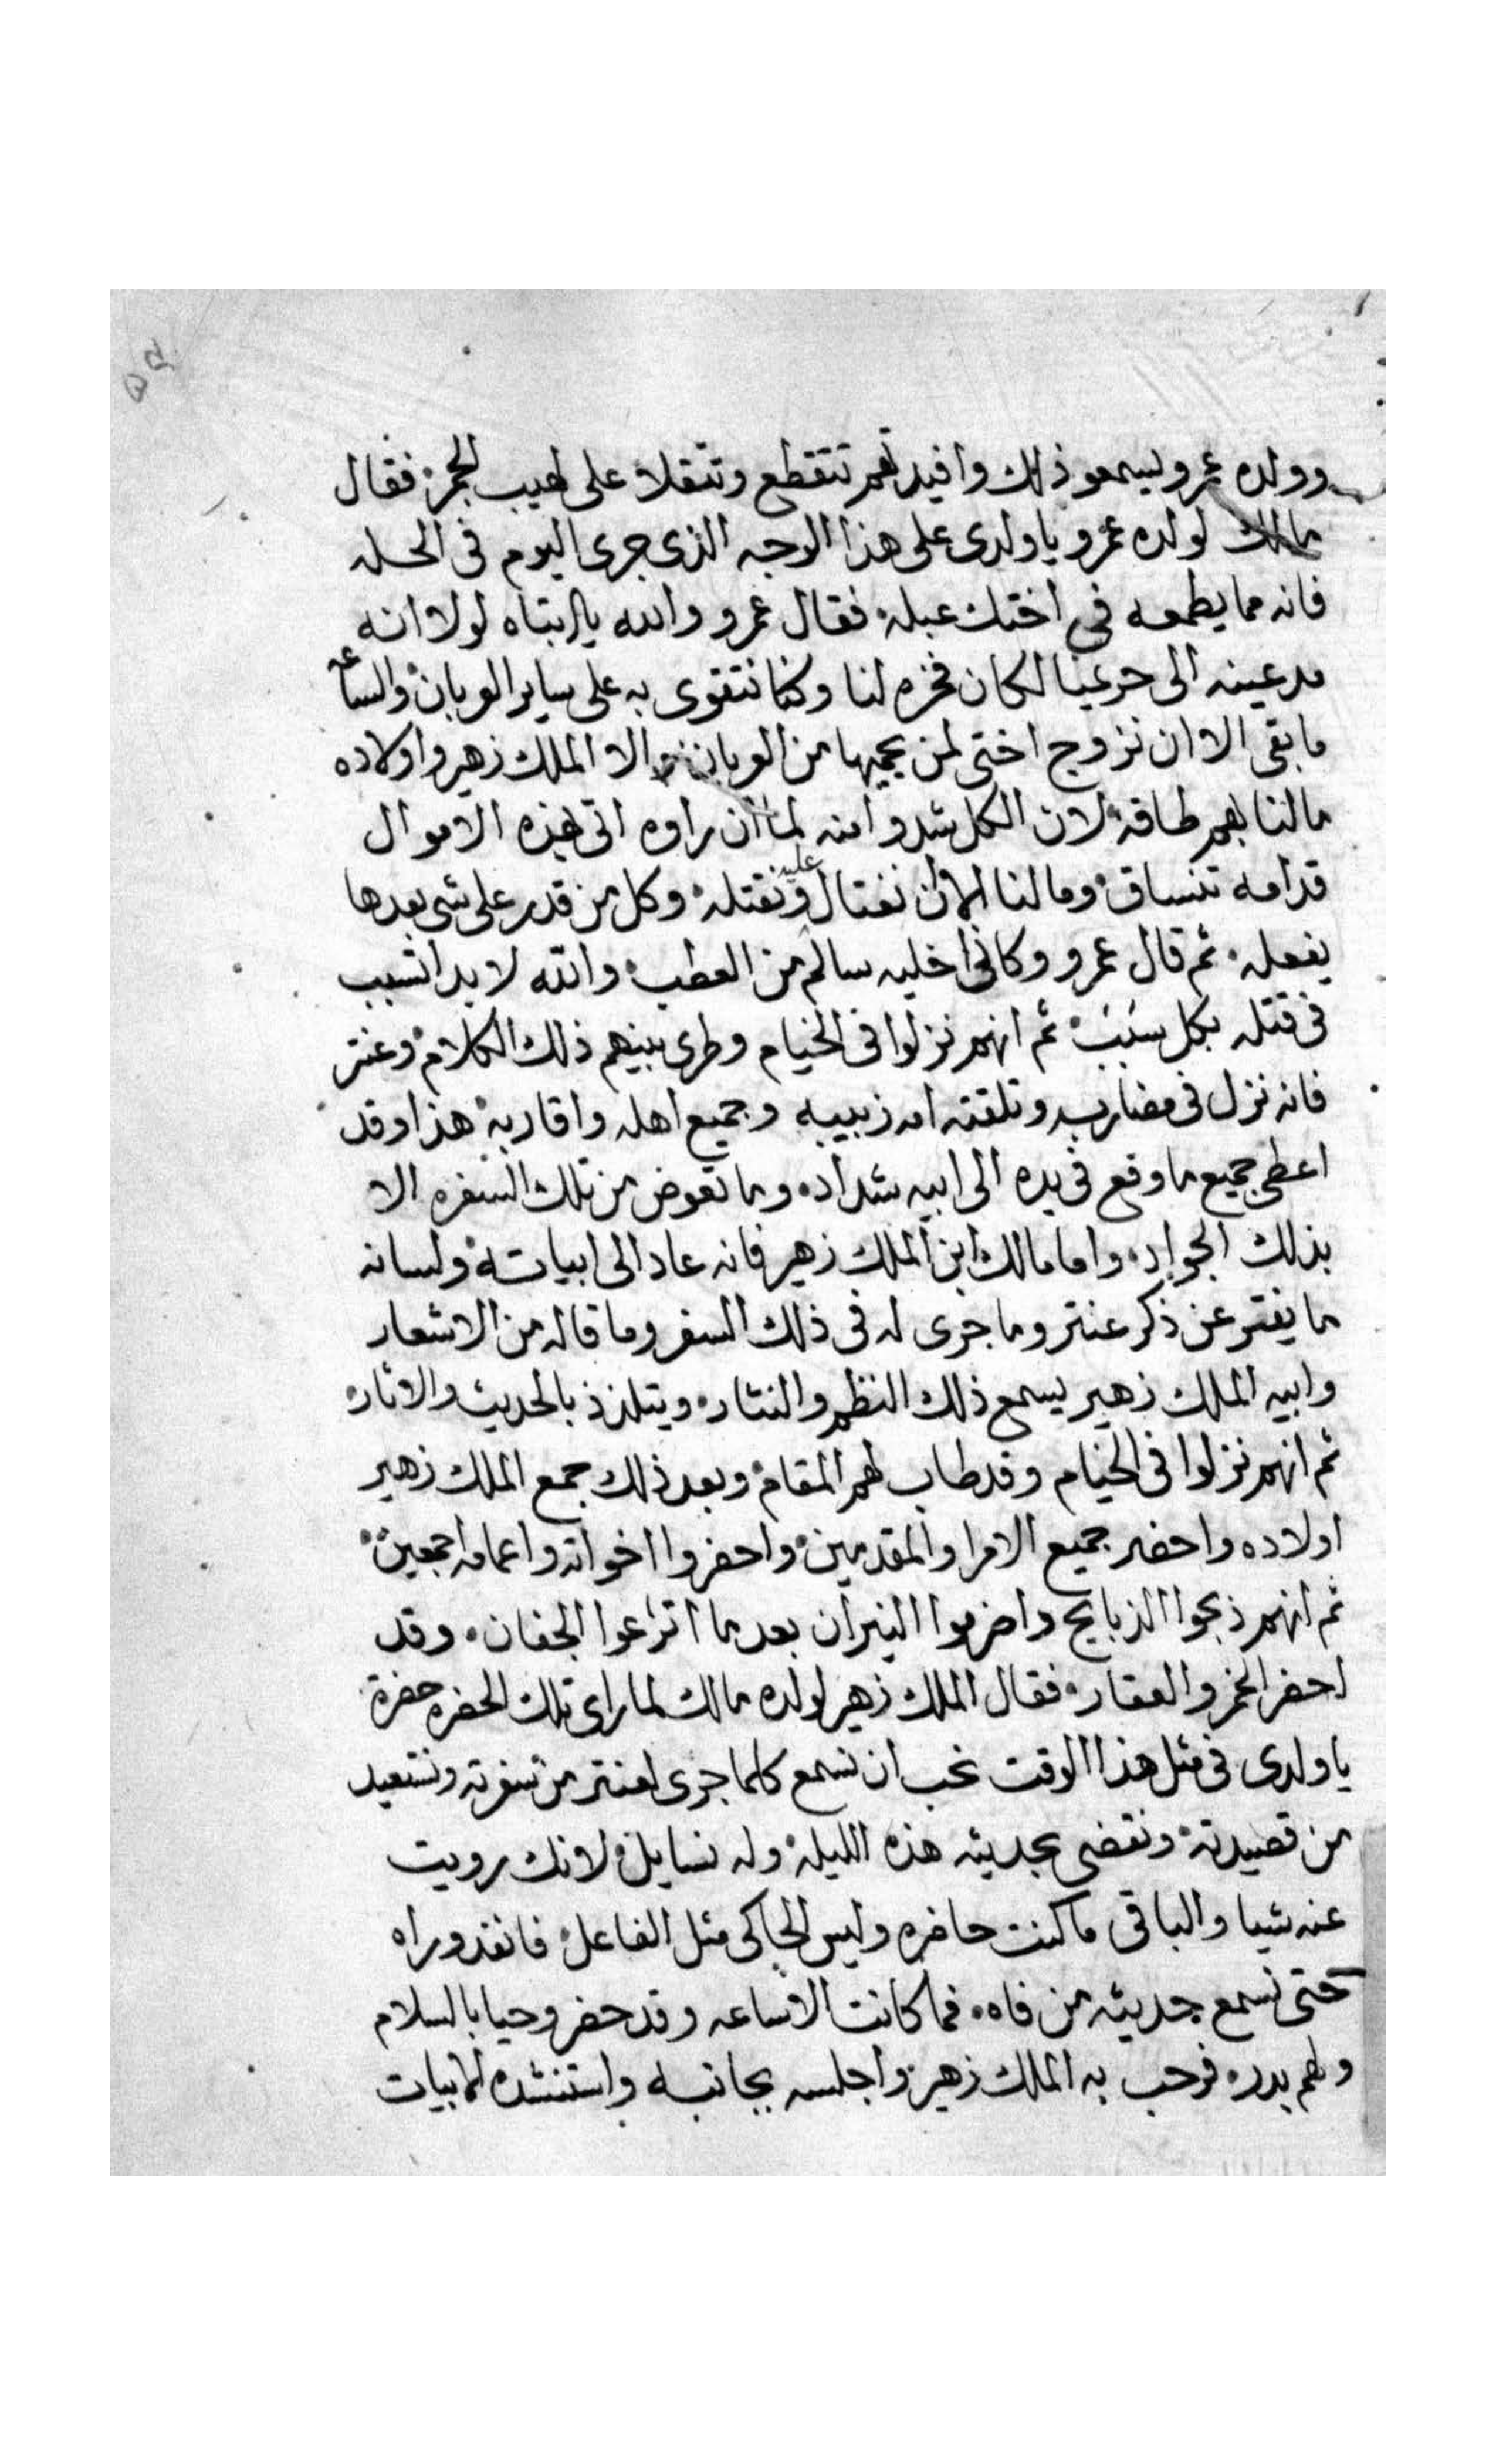 وولده عمرو يسمعو ذلك وافيدتهم تتقطع وتتقلا على لهيب الجمر فقال
مالك لولده عمرو يا ولدى على هذا الوجه الذى جرى اليوم فى الحله
فانه مما يطمعه فى اختك عبله فقال عمرو والله يا ابتاه لولا انه
مد عينه الى حريمنا لكان فخره لنا وكنا نتقوى به على ساير العربان والساعه
ما بقى الا ان نزوج اختى لمن يحميها من العربان والا الملك زهير واولاده
مالنا بهم طاقه لان الكل شدو امنه لما ان راوه اتى هذه الاموال
قدامه تنساق وما لنا الا ان نغتال عليه ونقتله وكل من قدر على شى بعدها
يفعله ثم قال عمرو وكانى اخليه سالم من العطب والله لا بد اتسبب
فى قتله بكل سبب ثم انهم نزلوا فى الخيام وطرى بينهم ذلك الكلام وعنتر
فانه نزل فى مضاربه وتلقته امه زبيبه وجميع اهله واقاربه هذا وقد
اعطى جميع ما وقع فى يده الى ابيه شداد وما تعوض من تلك السفره الا
بذلك الجواد واما مالك ابن الملك زهير فانه عاد الى ابياته ولسانه
ما يفتر عن ذكر عنتر وما جرى له فى ذلك السفر وما قاله من الاشعار
وابيه الملك زهير يسمع ذلك النظم والنثار ويتلذذ بالحديث والاثار
ثم انهم نزلوا فى الخيام وقد طاب لهم المقام وبعد ذلك جمع الملك زهير
اولاده واحضر جميع الامرا والمقدمين واحضروا اخواته واعمامه اجمعين
ثم انهم ذبحوا الذبايح واضرموا النيران بعد ما اترعوا الجفان وقد
احضر الخمر والعقار فقال الملك زهير لولده مالك لما راى تلك الحضره حضرة
يا ولدى فى مثل هذا الوقت نحب ان نسمع كلما جرى لعنتر من سفرته ونستعيد
من قصيدته ونقضى بحديثه هذه الليله وله نسايل لانك رويت
عنه شيا والباقى ما كنت حاضره وليس الحاكى مثل الفاعل فانفذ وراه
حتى نسمع حديثه من فاه فما كانت الا ساعه وقد حضر وحيا بالسلام
ولهم بدره فرحب به الملك زهير واجلسه بجانبه واستنشده الابيات